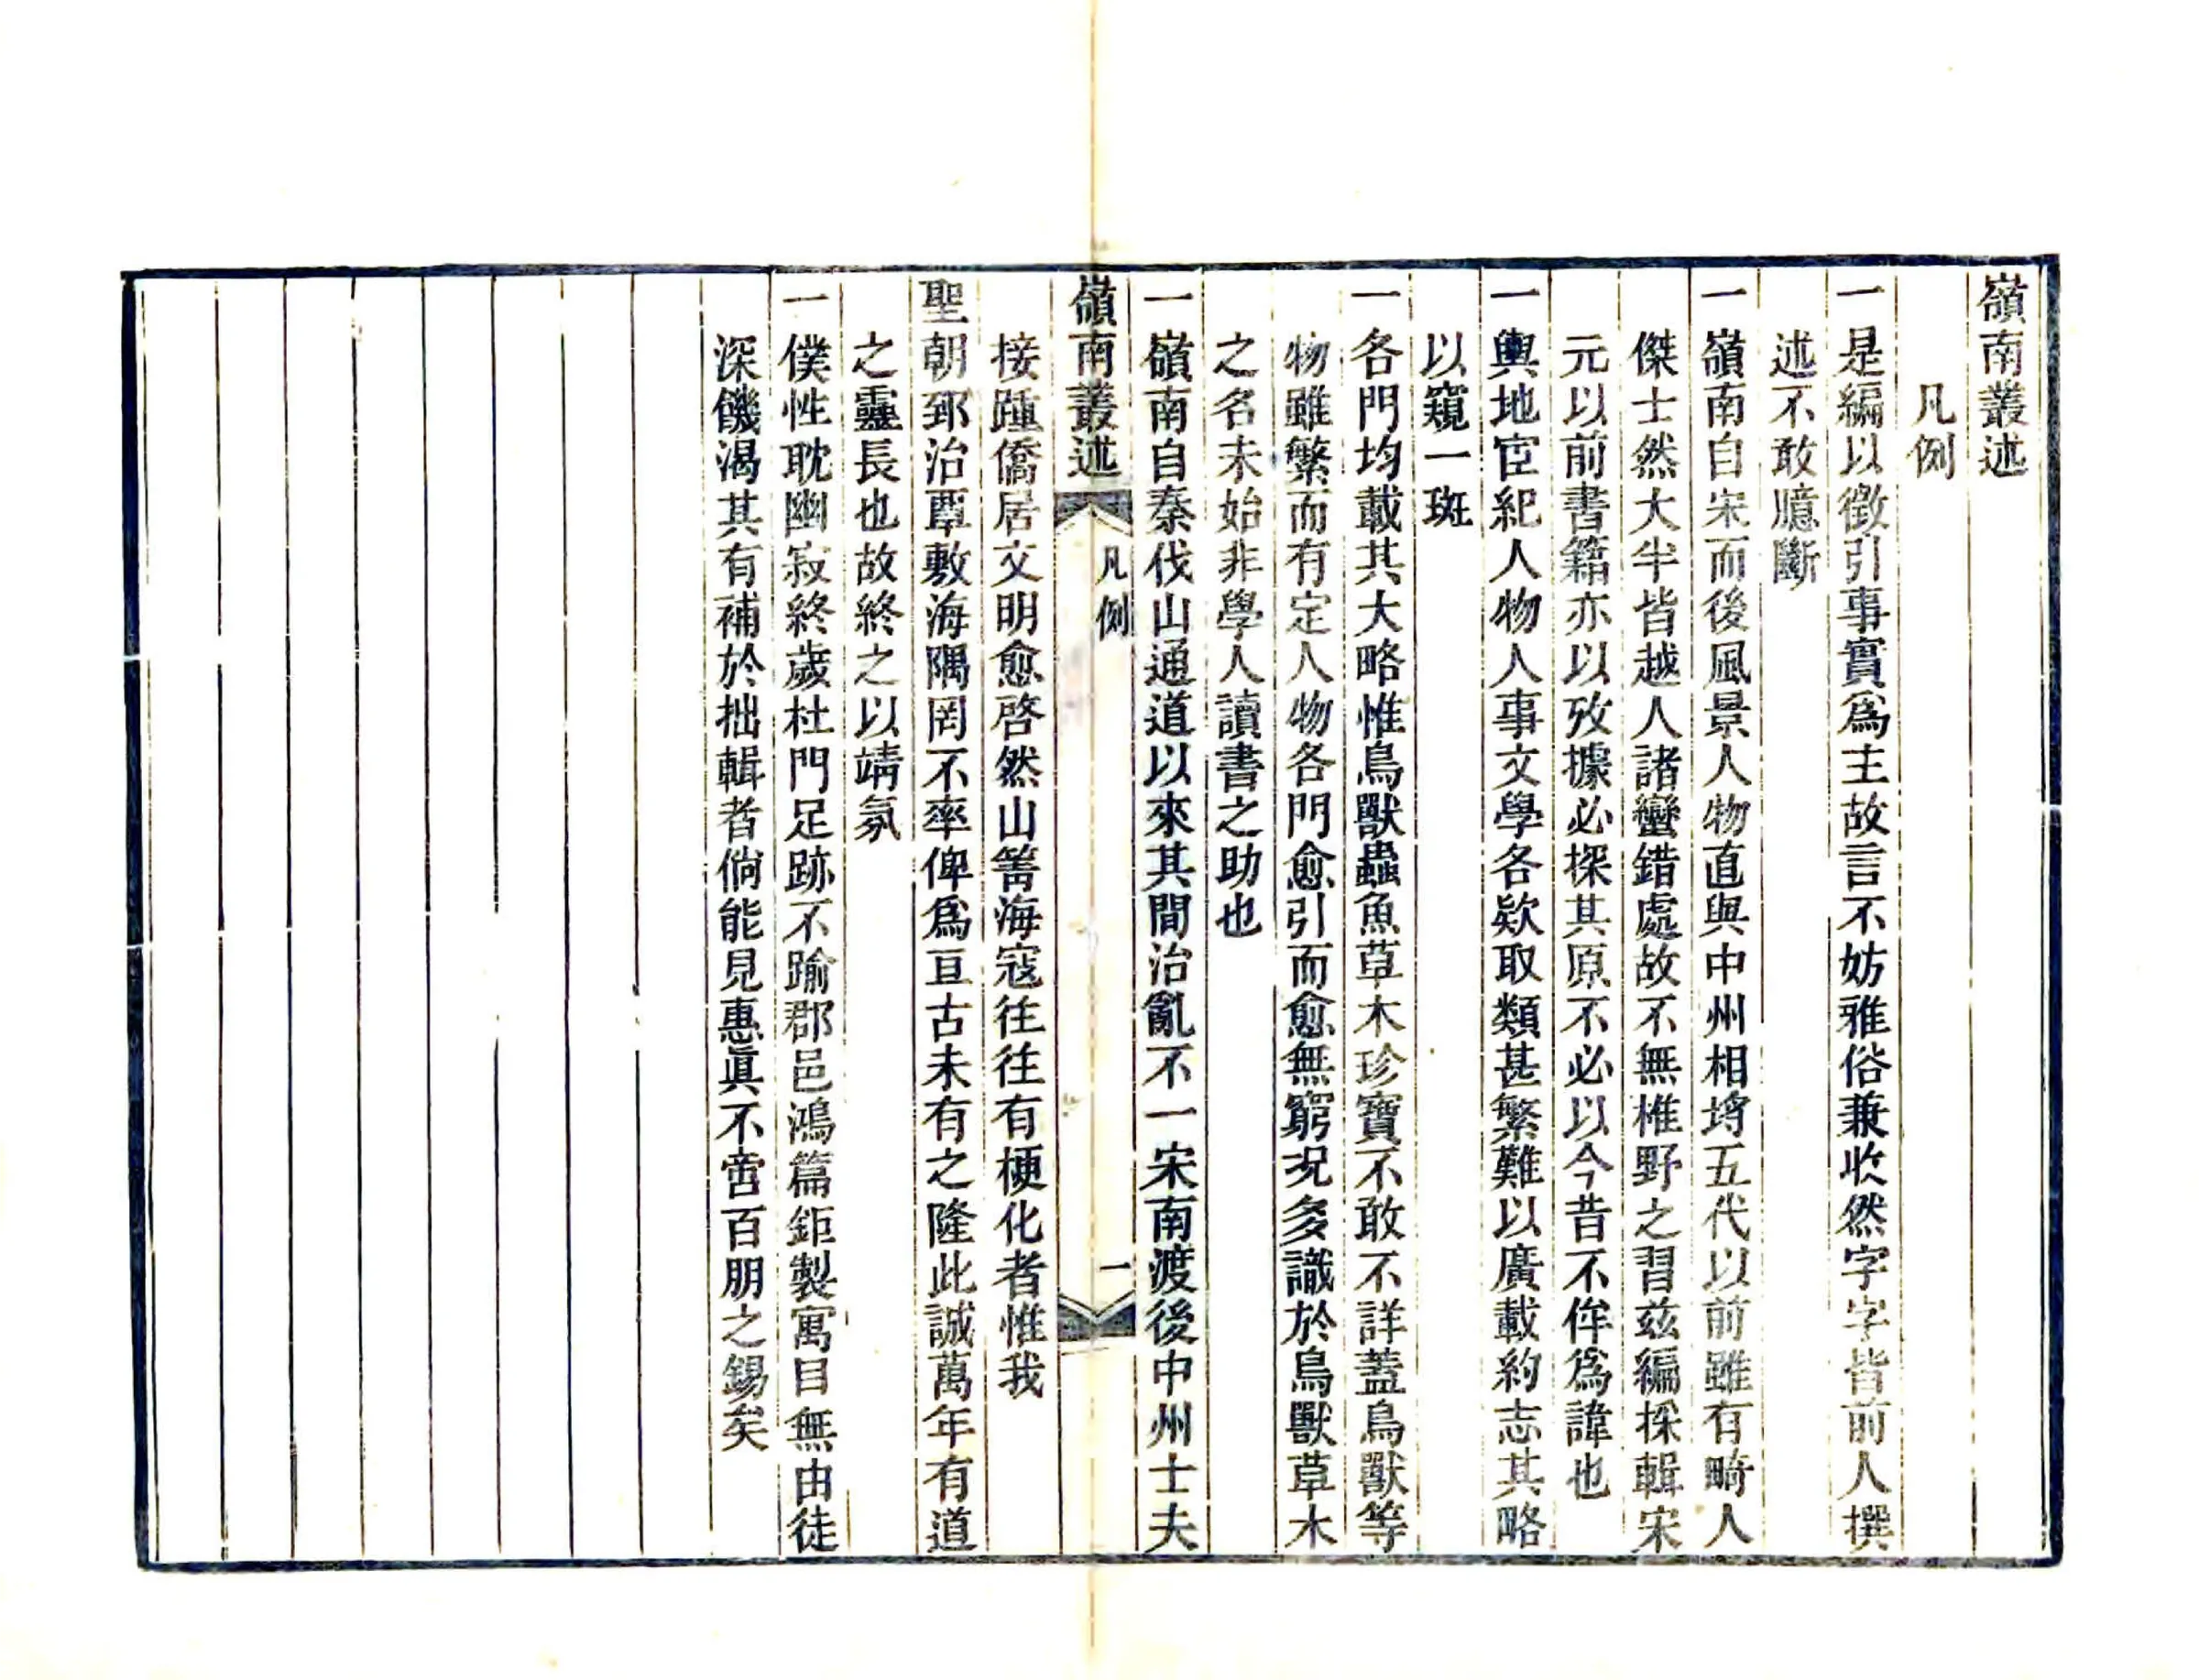 嶺南叢述
凡例
一是編以徵引事實爲主故言不妨雅俗兼收然字字皆前人撰
述不敢臆斷
一嶺南自宋而後風景人物直與中州相埓五代以前雖有畸人
傑士然大半皆越人諸蠻錯處故不無椎野之習兹編採輯宋
元以前書籍亦以攷據必探其原不必以今昔不侔爲諱也
一輿地宦紀人物人事文學各欵取類甚繁難以廣載約志其略
以窺一斑
一各門均載其大略惟鳥獸蟲魚草木珍寶不敢不詳蓋鳥獸等
物雖繁而有定人物各門愈引而愈無窮况多識於鳥獸草木
之名未始非學人讀書之助也
一嶺南自秦伐山通道以來其間治亂不一宋南渡後中州士夫
嶺南叢述 凡例 一
接踵僑居文明愈啓然山箐海寇往往有梗化者惟我
聖朝郅治覃敷海隅罔不率俾爲亘古未有之隆此誠萬年有道
之靈長也故終之以靖氛
一僕性耽幽寂終歲杜門足跡不踰郡邑鴻篇鉅製寓目無由徒
深饑渴其有補於拙輯者倘能見惠眞不啻百朋之錫矣